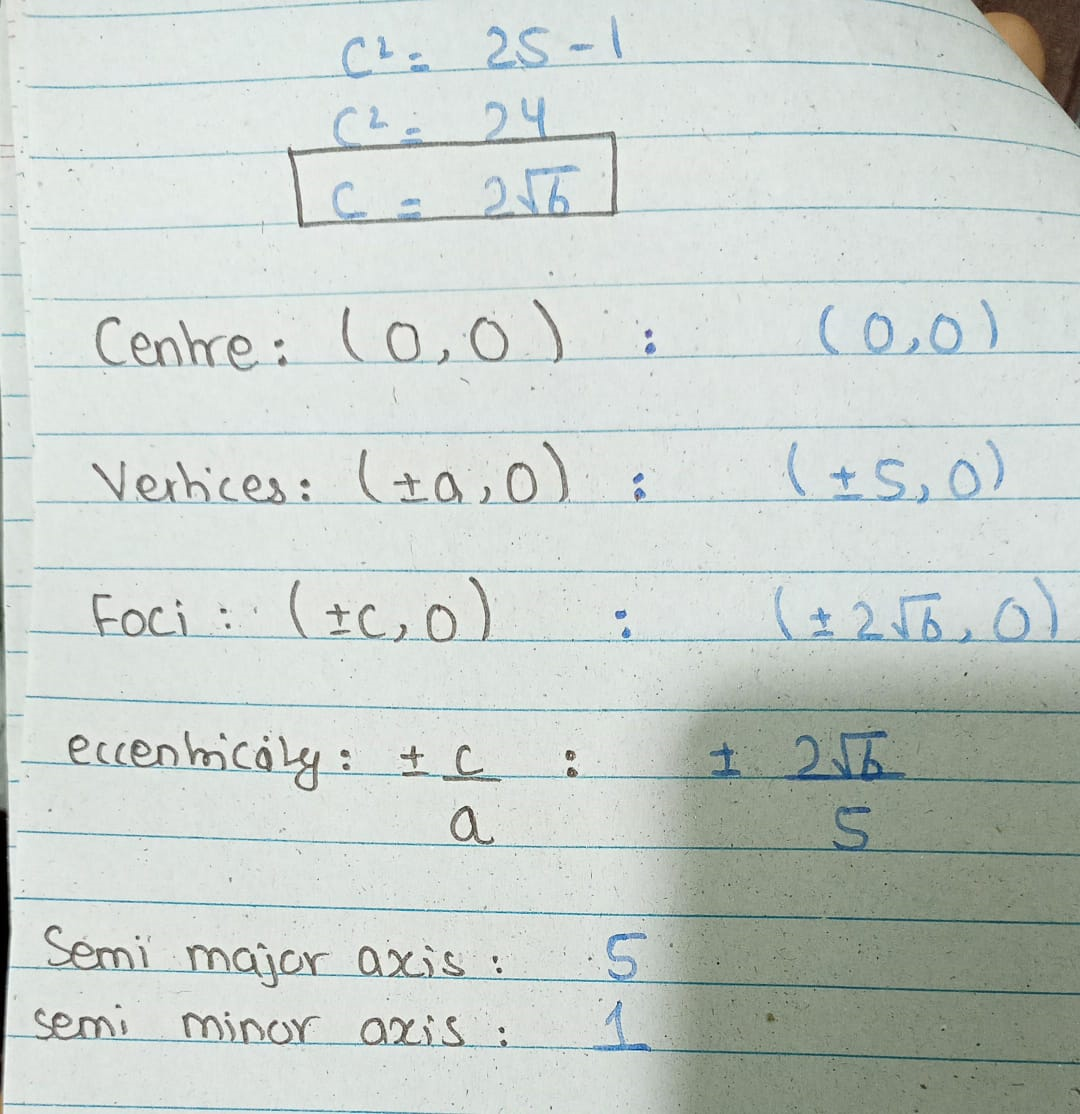 C² = 25 - 1
C² = 24
C = 2√6
Centre : (0,0) : (0,0)
Vertices : (±a,0) : (±5,0)
Foci : (±c,0) : (±2√6,0)
eccentricity : ± c/a : ± 2√6/5
Semi major axis : 5
semi minor axis : 1